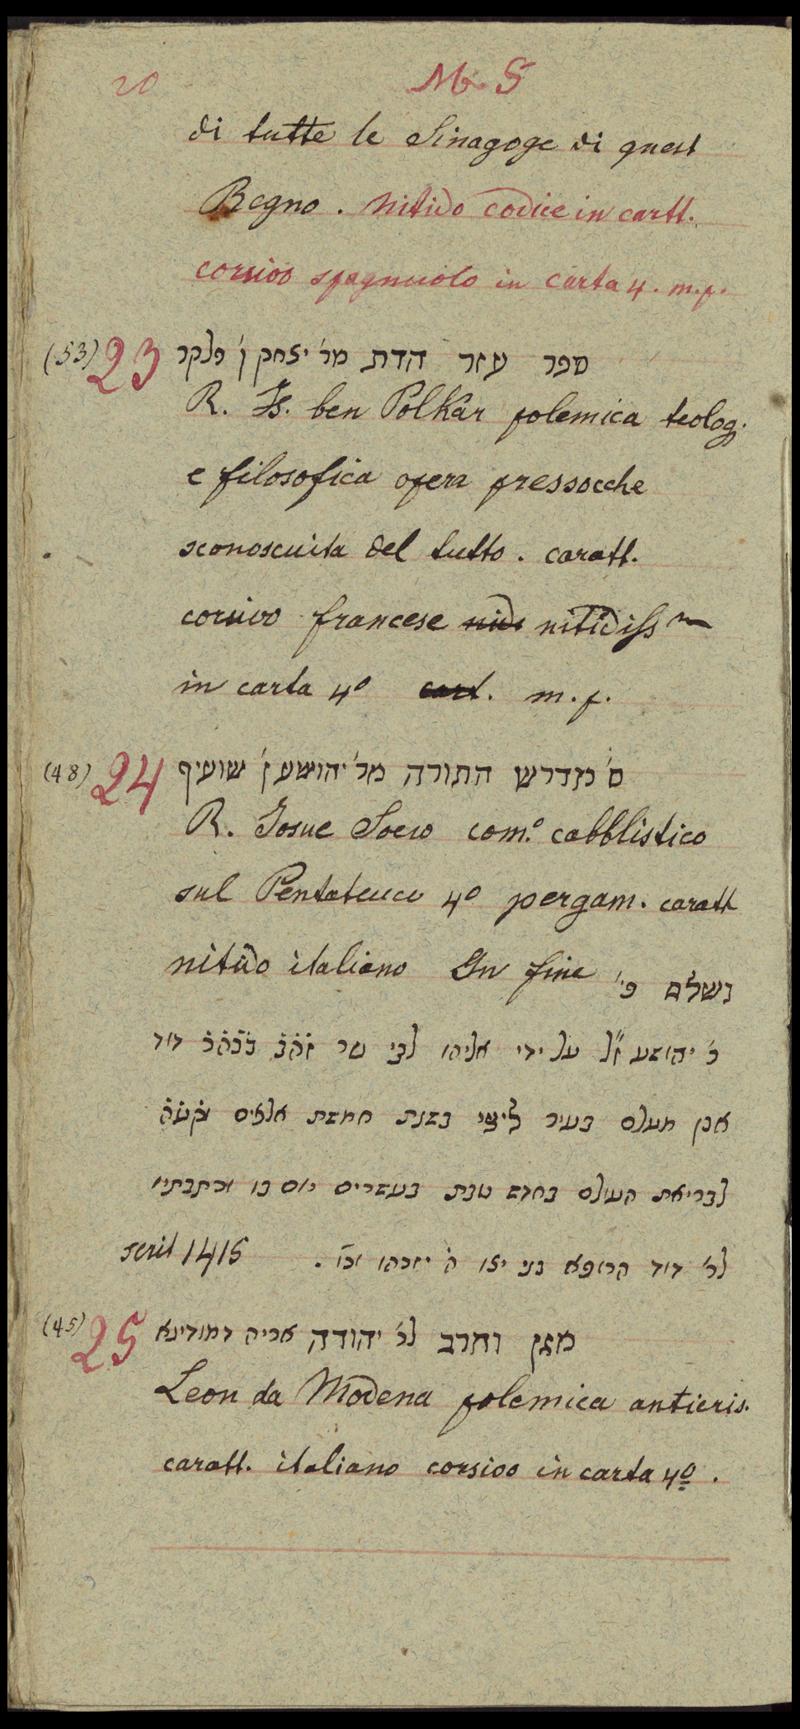 20 MS
di tutte le Sinagoge di quest
Regno. nitido codice in caratt.
corsivo spagnuolo in carta 4. m.f.
(53) 23 ספר עזר הדת מר׳ יצחק ן׳ פלקר
R. Is. ben Polkàr polemica teolog.
e filosofica opera pressocche
sconosciuta del tutto. caratt.
corsivo francese nitidiss
in carta 4º cart. m.f.
(48) 24 ס׳ מדרש התורה מר׳ יהושע ן׳ שועיף
R. Josue Soeio com.º cabblistico
sul Pentateuco 4º pergam. caratt
nitido italiano In fine נשלם פי׳
ר׳ יהושע ז״ל על ידי אליהו לבי שר דוד
אבן בעיר בשנת חמשת אלפים
לבריאת העולם בחדש טבת בעשרים יום בו וכתבתיו
לר׳ דוד הרופא בני יצו ה׳ יזכהו וכו׳. scrit 1415
(45) 25 מגן וחרב לר׳ יהודה אריה דמודינא
Leon da Modena polemica anticris.
caratt. italiano corsivo in carta 4º.